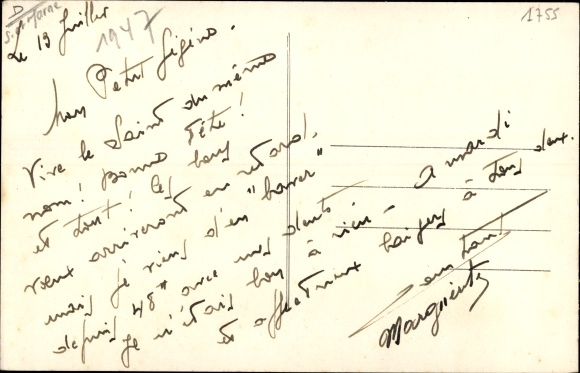 D
S. et Marne
1755
Le 13 Juillet
1947
Mon Petit Gigino.
Vive le Saint du même
nom! bonne Fête!
et tout! Ces bons
voeux arriveront en retard.
mais je viens d'en "baver"
depuis 48h avec mes dents!
Je n'étais bon à rien - A mardi
et affectueux baisers à tous deux.
Marguerite